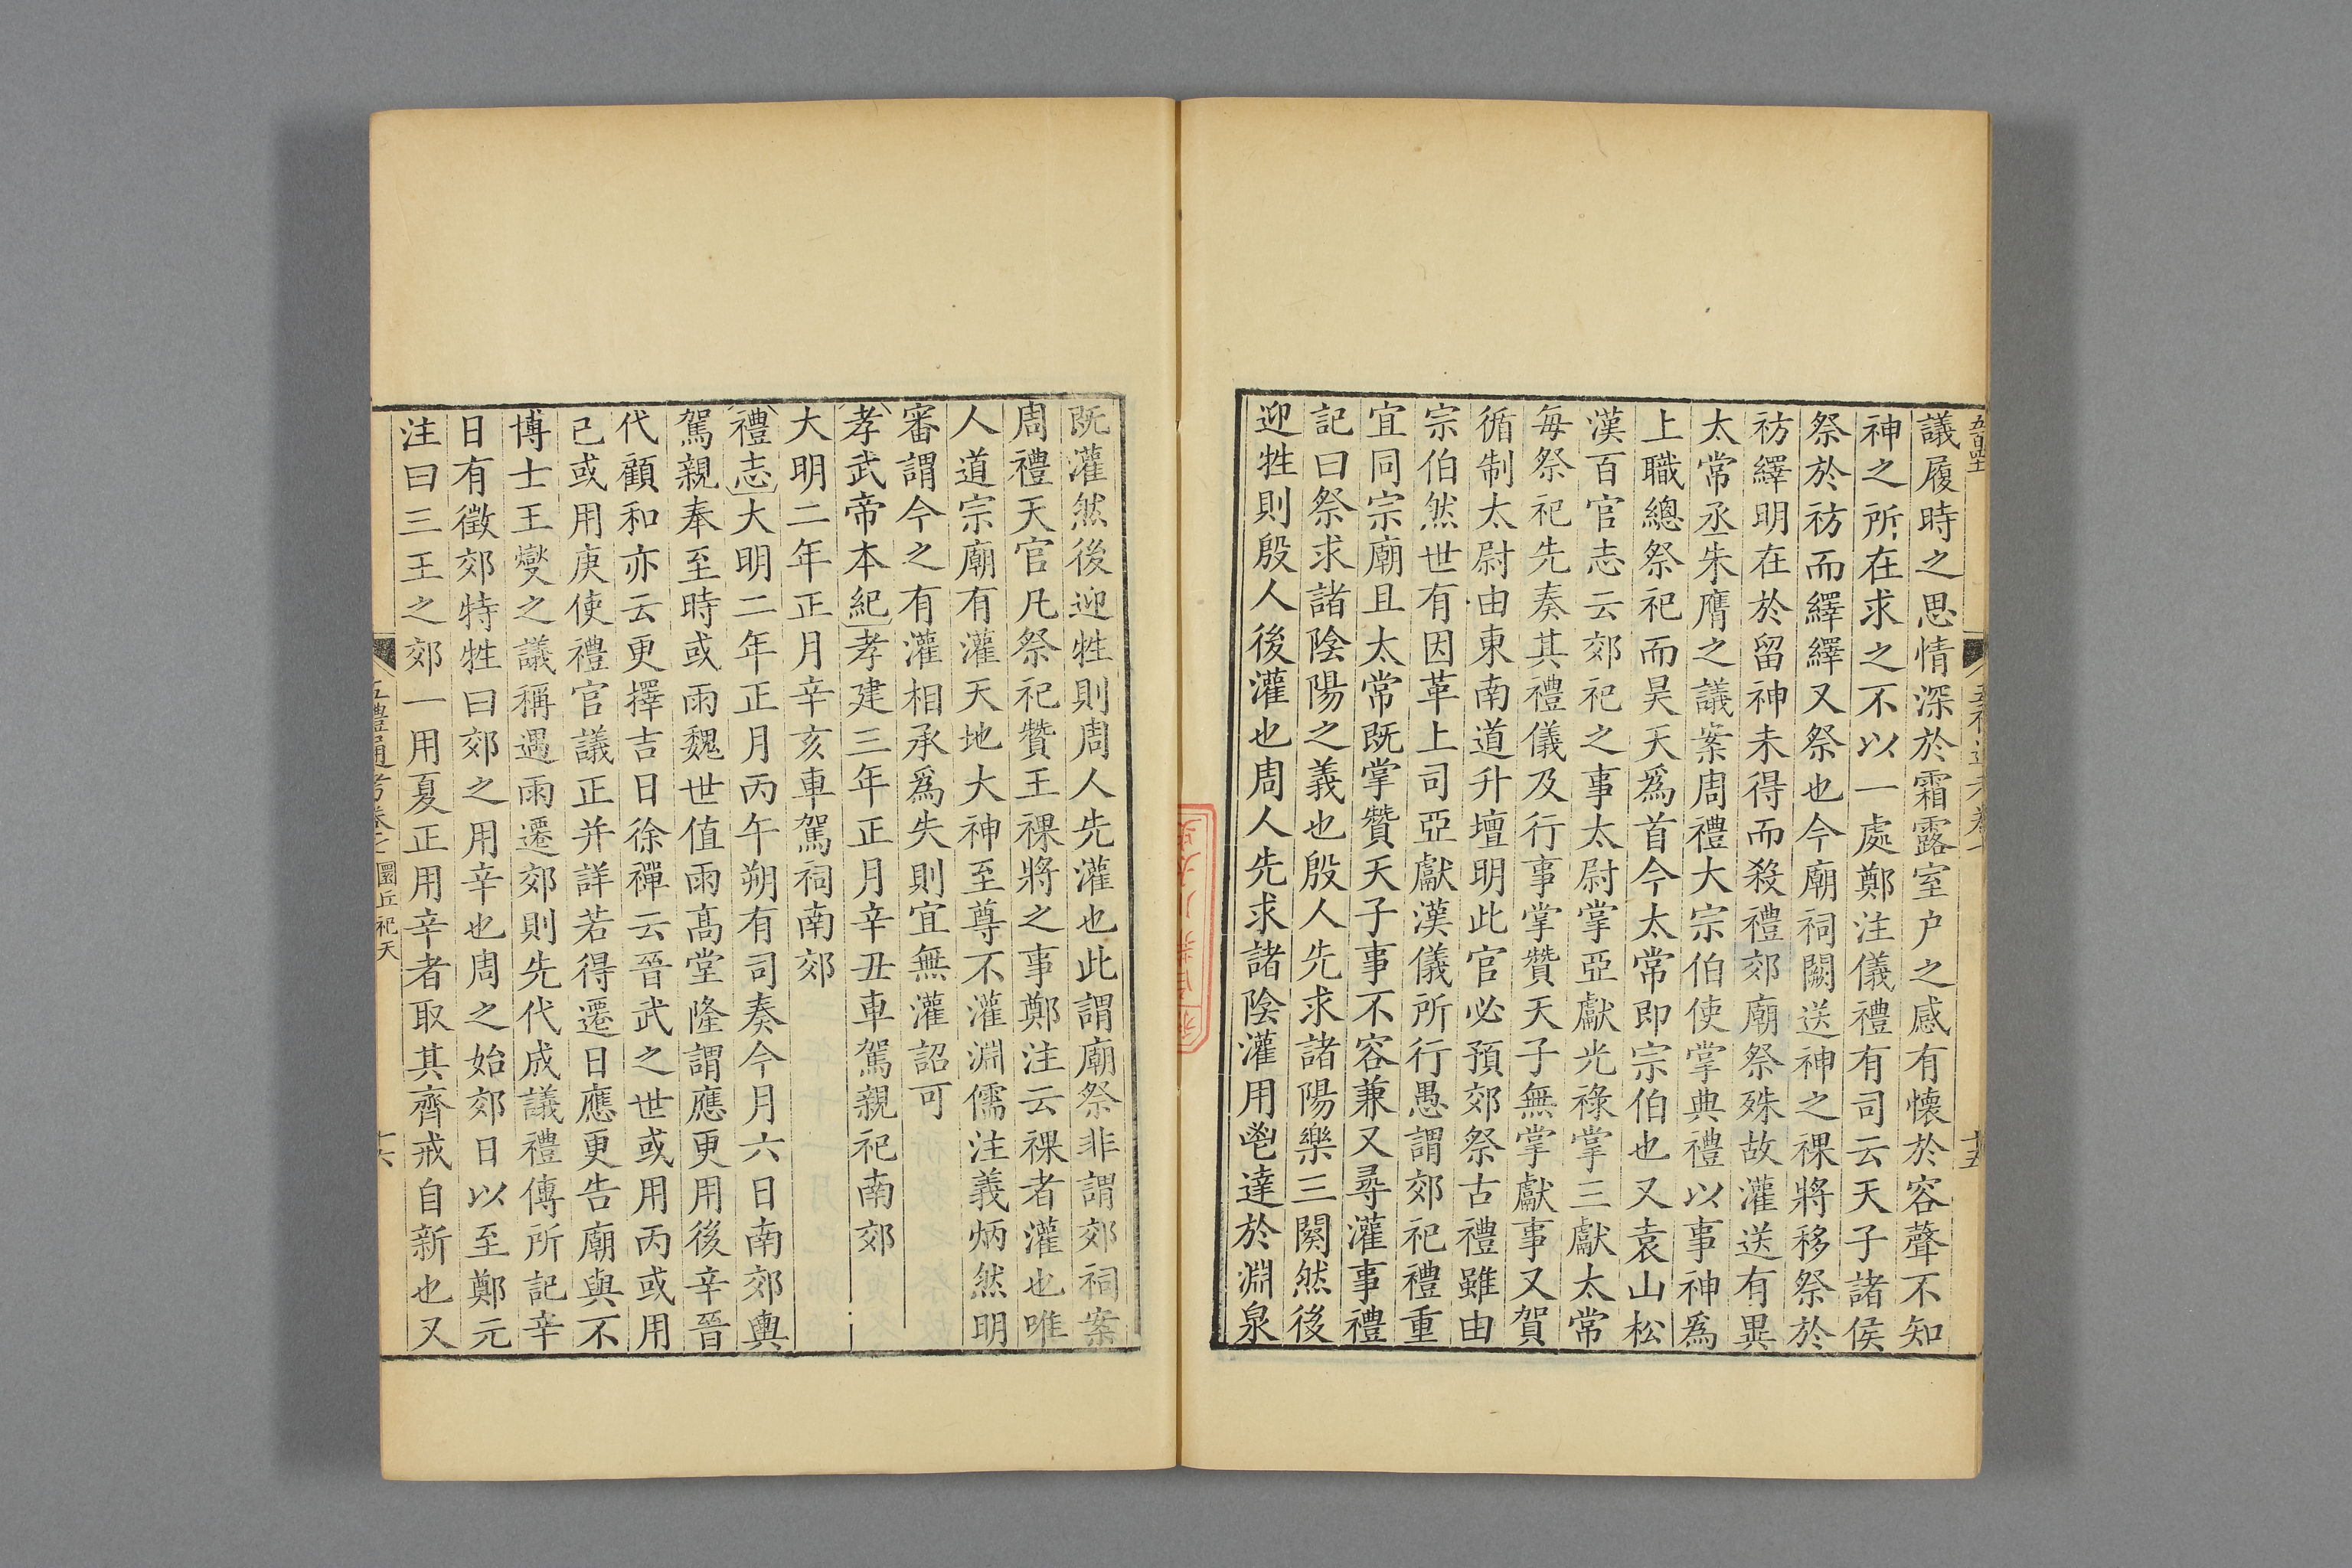 議履時之思情深於霜露室户之感有懷於容聲不知
神之所在求之不以一處鄭注儀禮有司云天子諸侯
祭於祊而繹繹又祭也今廟祠闕送神之祼將移祭於
祊繹明在於留神未得而殺禮郊廟祭殊故灌送有異
太常丞朱膺之議案周禮大宗伯使掌典禮以事神爲
上職總祭祀而昊天爲首今太常即宗伯也又袁山松
漢百官志云郊祀之事太尉掌亞獻光祿掌三獻太常
每祭祀先奏其禮儀及行事掌贊天子無掌獻事又賀
循制太尉由東南道升壇明此官必預郊祭古禮雖由
宗伯然世有因革上司亞獻漢儀所行愚謂郊祀禮重
宜同宗廟且太常既掌贊天子事不容兼又尋灌事禮
記曰祭求諸陰陽之義也殷人先求諸陽樂三闋然後
迎牲則殷人後灌也周人先求諸陰灌用鬯達於淵泉
既灌然後迎牲則周人先灌也此謂廟祭非謂郊祠案
周禮天官凡祭祀贊王祼將之事鄭注云祼者灌也唯
人道宗廟有灌天地大神至尊不灌淵儒注義炳然明
審謂今之有灌相承爲失則宜無灌詔可
孝武帝本紀孝建三年正月辛丑車駕親祀南郊
大明二年正月辛亥車駕祠南郊
禮志大明二年正月丙午朔有司奏今月六日南郊輿
駕親奉至時或雨魏世值雨高堂隆謂應更用後辛晉
代顧和亦云更擇吉日徐禪云晉武之世或用丙或用
己或用庚使禮官議正并詳若得遷日應更告廟與不
博士王燮之議稱遇雨遷郊則先代成議禮傳所記辛
日有徵郊特牲曰郊之用辛也周之始郊日以至鄭元
注曰三王之郊一用夏正用辛者取其齊戒自新也又
五禮通考卷七 圜丘祀天 十六